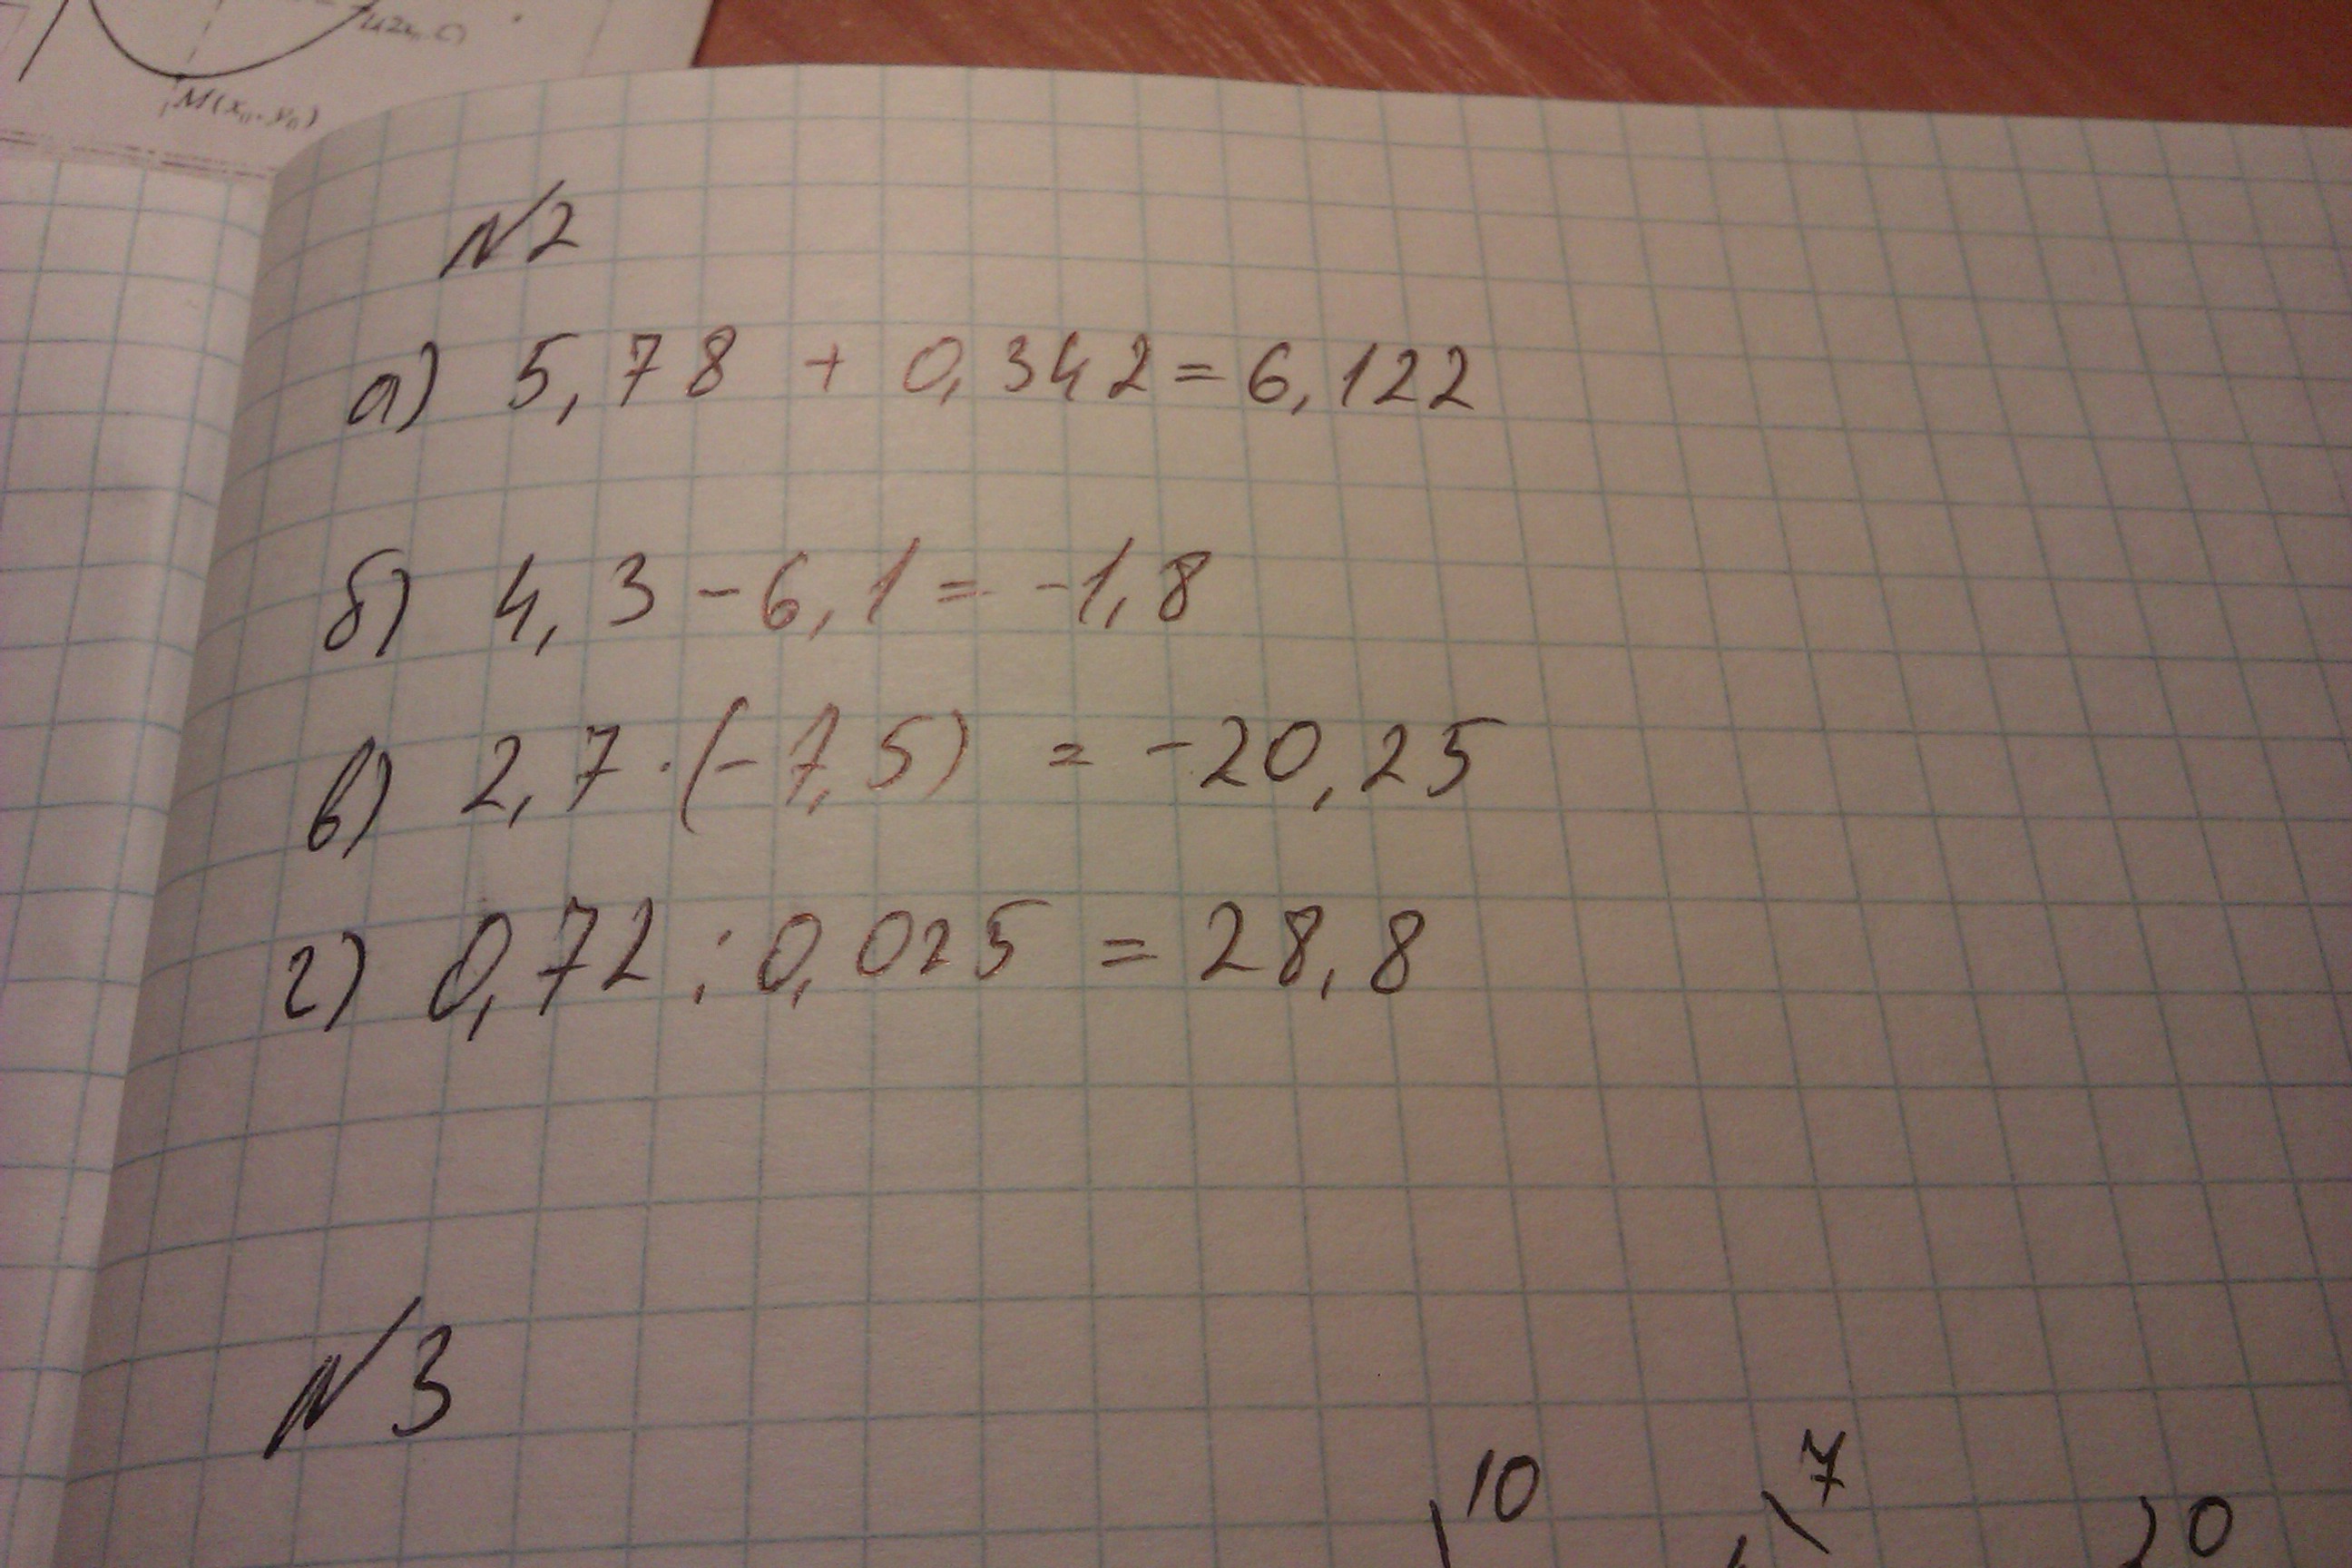 M(x₀, y₀)
N2
а) 5,78 + 0,342 = 6,122
б) 4,3 - 6,1 = -1,8
в) 2,7 · (-7,5) = -20,25
г) 0,72 : 0,025 = 28,8
N3
10 7 0